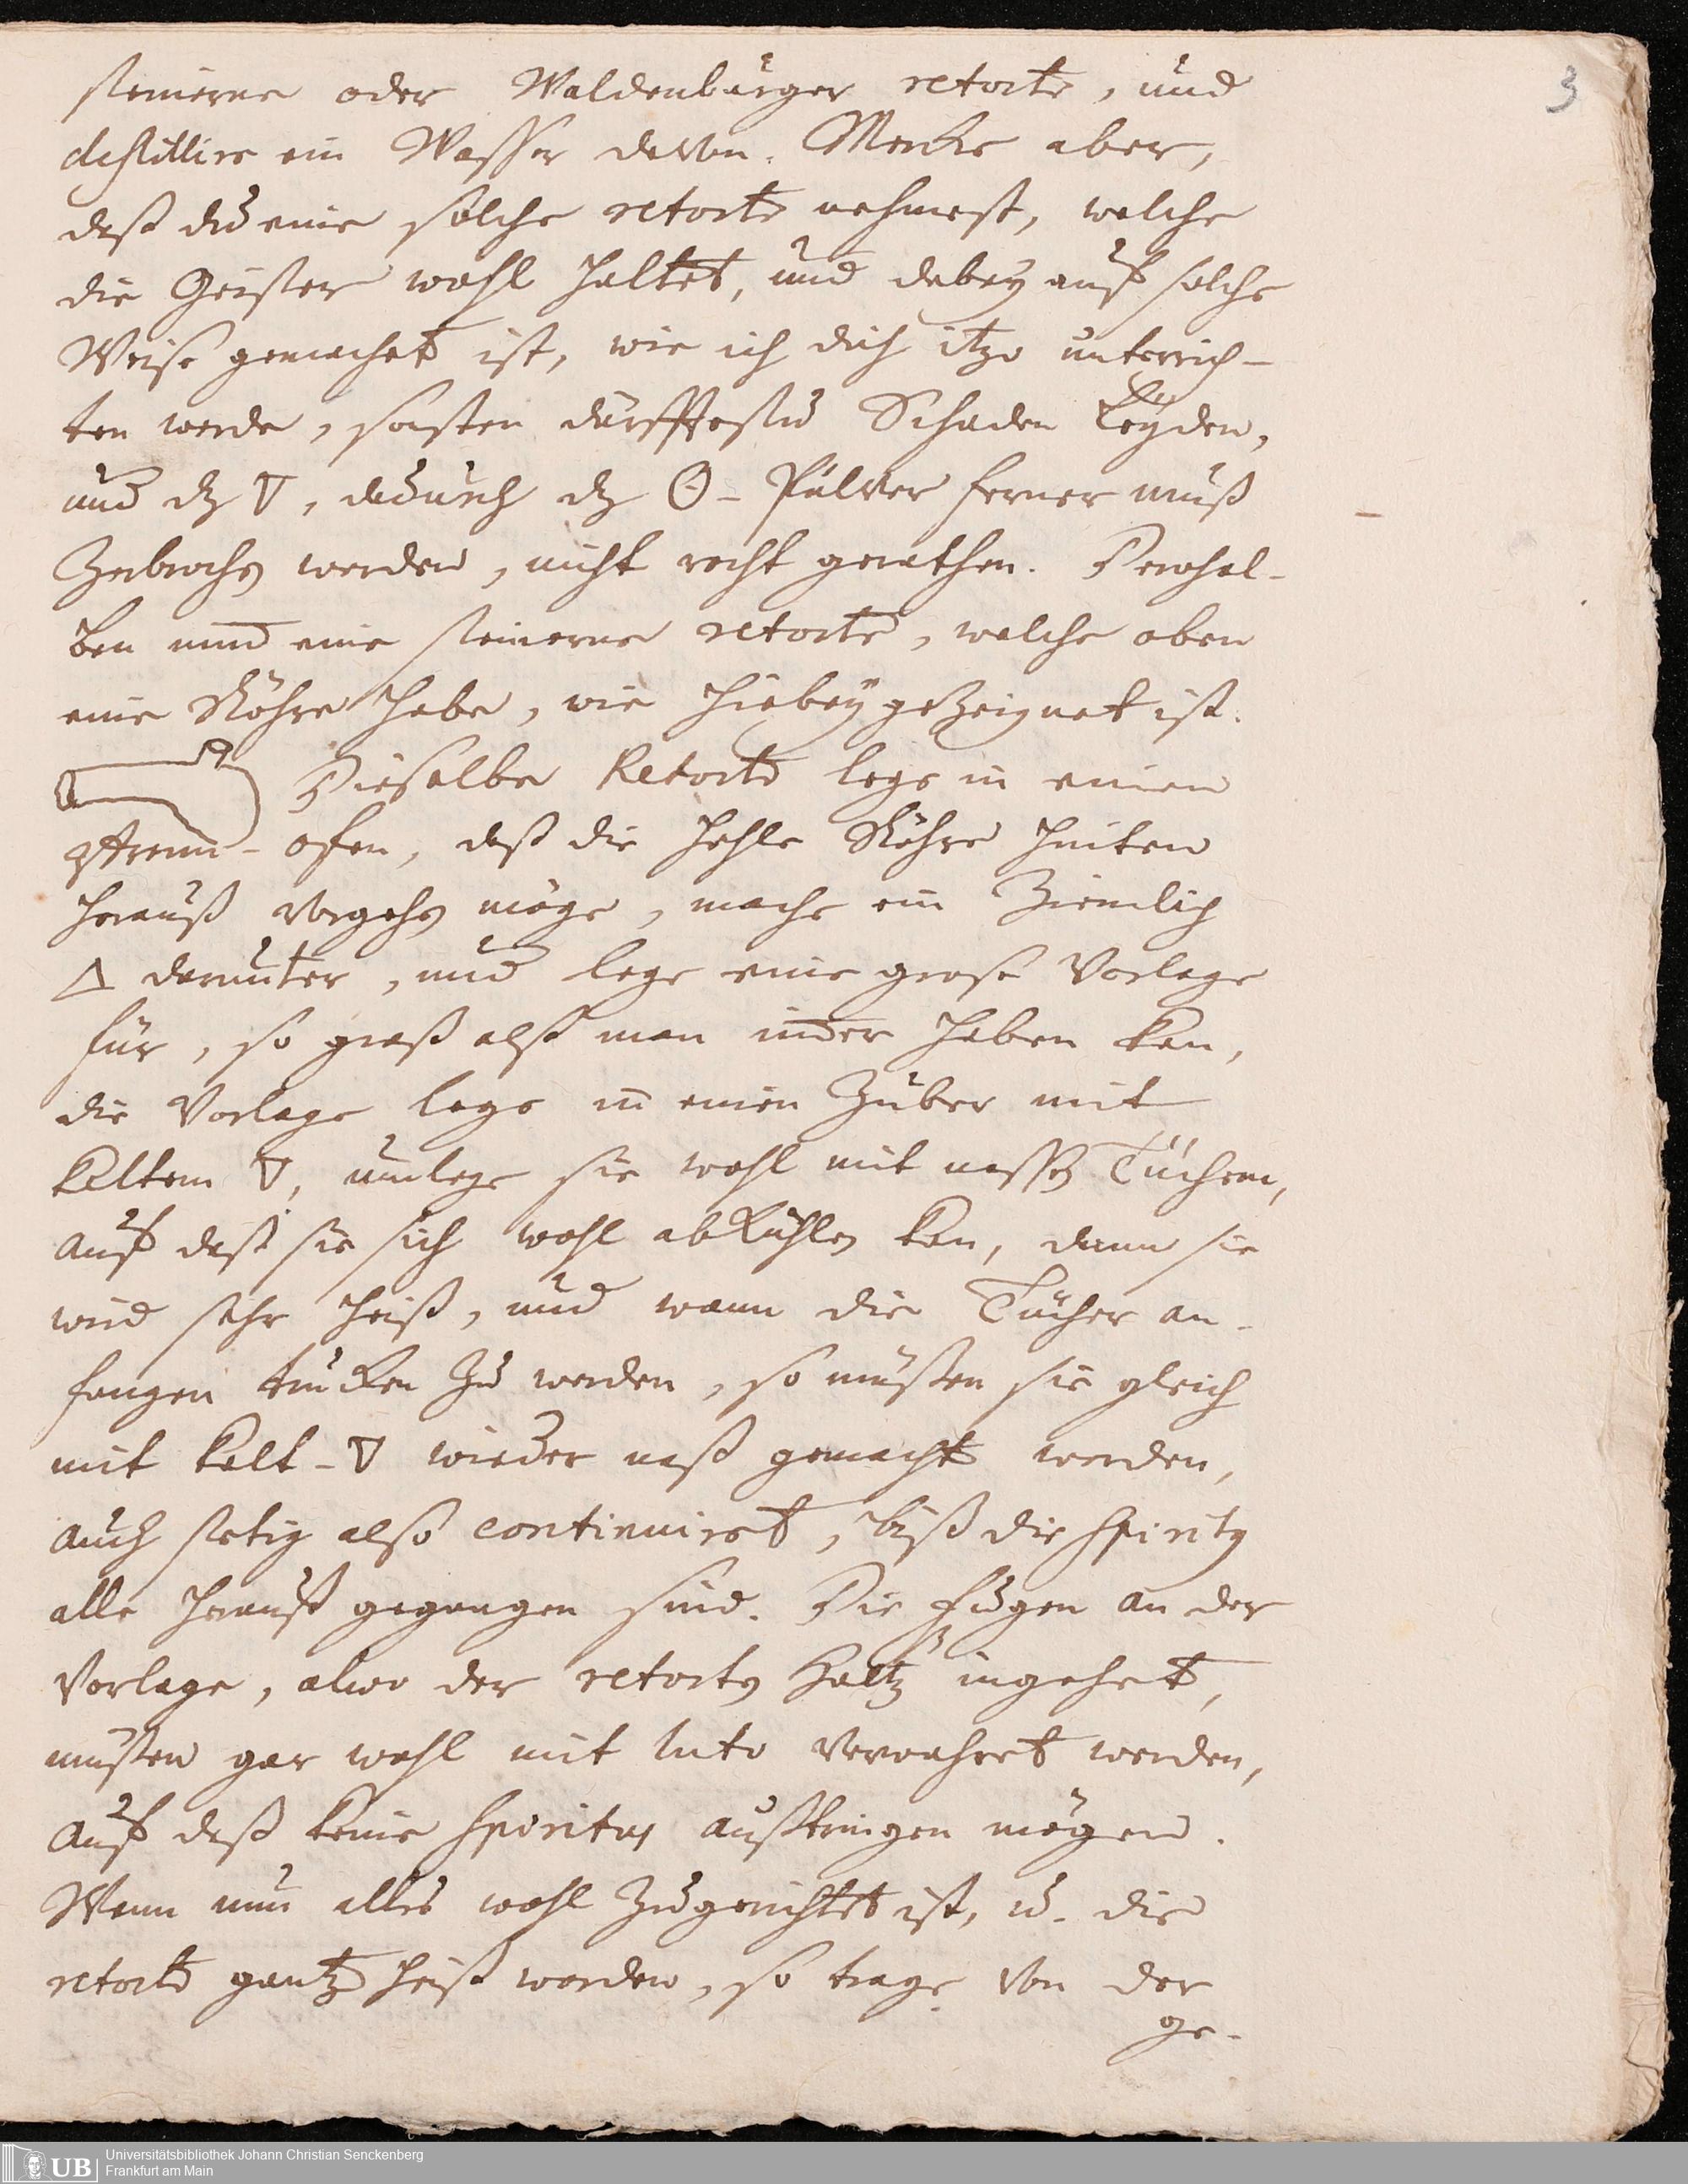 3
steinerne oder Waldenburger retorte, und
destillire ein Wasser davon. Mercke aber,
daß du eine solche retorte nehmest, welche
die Geister wohl haltet, und dabey auf solche
Weise gemachet ist, wie ich dich itzo unterrich-
ten werde, sonsten dürfftestu Schaden Leyden,
und dz 🜄, dadurch dz ☉- Pulver ferner muß
Zerbrochen werden, nicht recht gerathen. Derohal-
ben nimb eine steinerne retorte, welche oben
eine Röhre habe, wie hiebey gezeignet ist.
Dieselbe Retorte lege in einen
ofen, daß die Röhre hinten
herauß gehen möge, mache ein Ziemlich
🜂 darunter, und lege eine große Vorlage
für, so groß alß man haben kan,
die Vorlage lege in einen Zuber mit
kaltem 🜄, umlege sie wohl mit nassen Tüchern,
auf daß sie sich wohl abkühlen kan, dann sie
wird sehr heiß, und wann die Tücher an-
fangen trucken zu werden, so müßen sie gleich
mit kalt-🜄 wieder naß gemacht werden,
auch stetig also continuiret, biß die Spiritus
alle herauß gegangen sind. Die Fugen an der
Vorlage, alwo der retorten Halß eingehet,
müßen gar wohl mit luto verwahret werden,
auf daß keine Spiritus außtringen mögen.
Wenn nun alles wohl zugerichtet ist, u. die
retorte gantz heiß worden, so trage von der
ge-
Universitätsbibliothek Johann Christian Senckenberg
Frankfurt am Main
UB